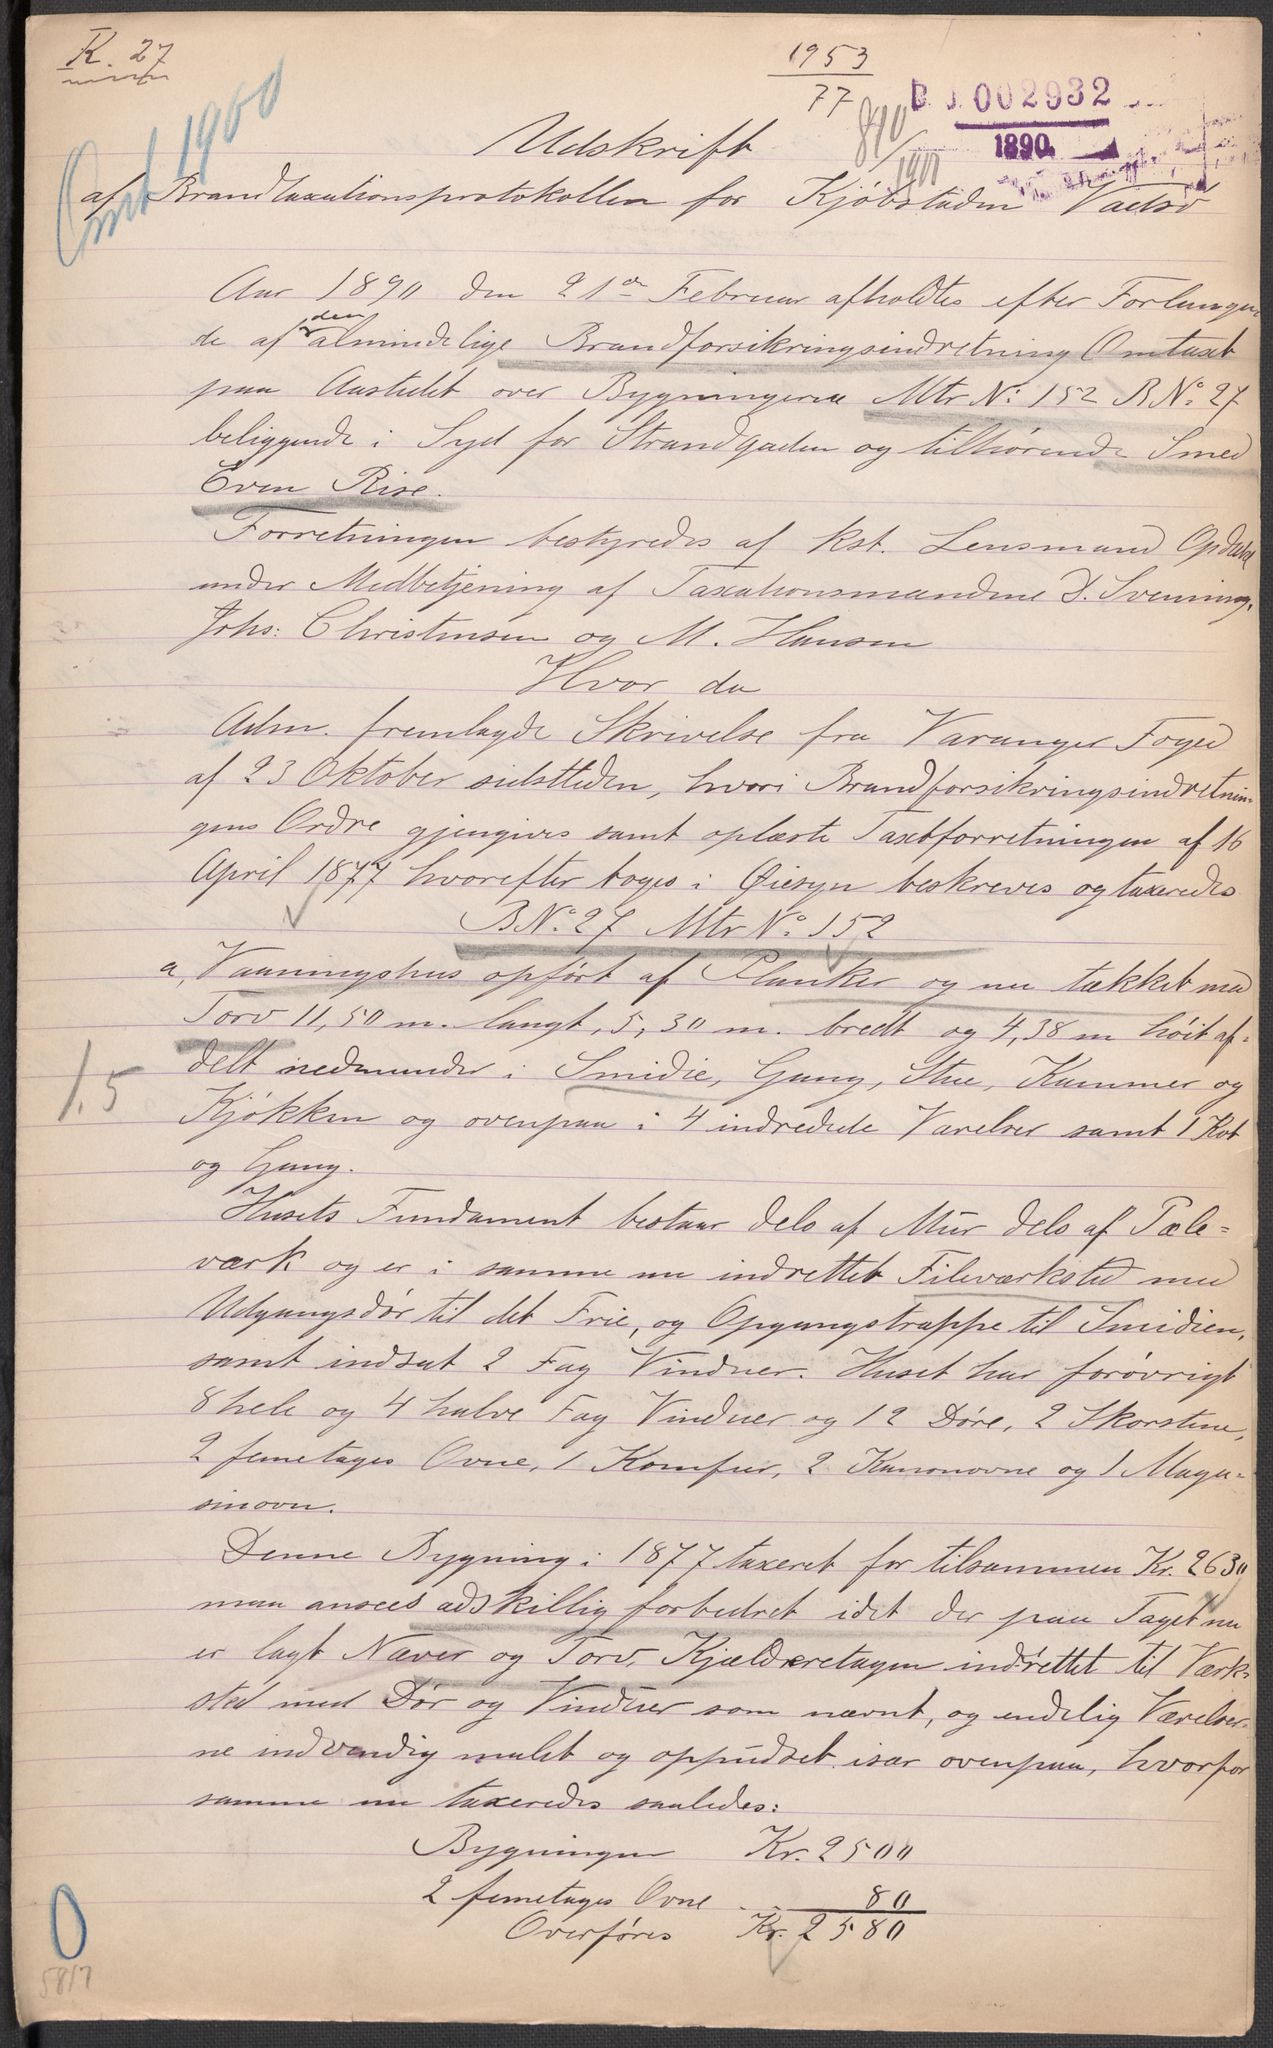 K. 27
1953
77
B. J. 002932
1890
Omt 1900
890
1900
Udskrift
af Brandtaxationsprotokollen for Kjøbstaden Vadsø
Aar 1890 den 21de Februar afholdtes efter Forlangen-
de af den almindelige Brandforsikringsindretning Omtaxt
paa Anstalet over Bygningerne Mtr No: 152 B No. 27
beliggende i Syd for Strandgaden og tilhørende Smed
Even Rise.
Forretningen bestyredes af Kst. Lensmand Opdahl
under Medbetjening af Taxationsmændene D. Svenning,
Johs: Christensen og M. Hansen
Hvor da
Adm. fremlagde Skrivelse fra Varanger Foged
af 23 Oktober sidstleden, hvori Brandforsikringsindretnin-
gens Ordre gjengives samt oplæste Taxtforretningen af 16
April 1877 hvorefter toges i Øiesyn beskreves og taxeredes
B No. 27 Mtr No. 152
a, Vaaningshus opført af Planker og nu tækket med
Torv 11,50 m. langt, 5,30 m. bredt og 4,38 m høit af-
delt nedenunder i Smidie, Gang, Stue, Kammer og
1.5
Kjøkken og ovenpaa i 4 indredede Værelser samt 1 Kot
og Gang.
Husets Fundament bestaar dels af Mur dels af Pæle-
værk og er i samme nu indrettet Fileværksted med
Udgangsdør til det Frie, og Opgangstrappe til Smidien,
samt indsat 2 Fag Vinduer. Huset har forøvrigt
8 hele og 4 halve Fag Vinduer og 12 Døre, 2 Skorstene,
2 femetages Ovne, 1 Komfur, 2 Kanonovne og 1 Maga-
sinovn.
Denne Bygning i 1877 taxeret for tilsammen Kr. 2630
maa ansees adskillig forbedret idet der paa Taget nu
er lagt Næver og Torv, Kjælderetagen indrettet til Værk-
sted med Dør og Vinduer som nævnt, og endelig Værelser-
ne indvendig malet og oppudset især ovenpaa, hvorfor
samme nu taxeredes saaledes:
Bygningen Kr. 2500
2 femetages Ovne 80
Overføres Kr. 2580
0
5817